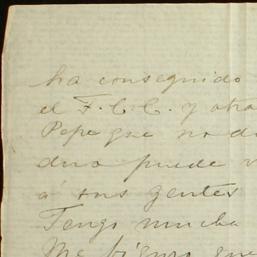 ha conseguido
el F. C. C. y aho
Pepe que no du
duo puede v
á sus gentes
Tengo mucha
Me